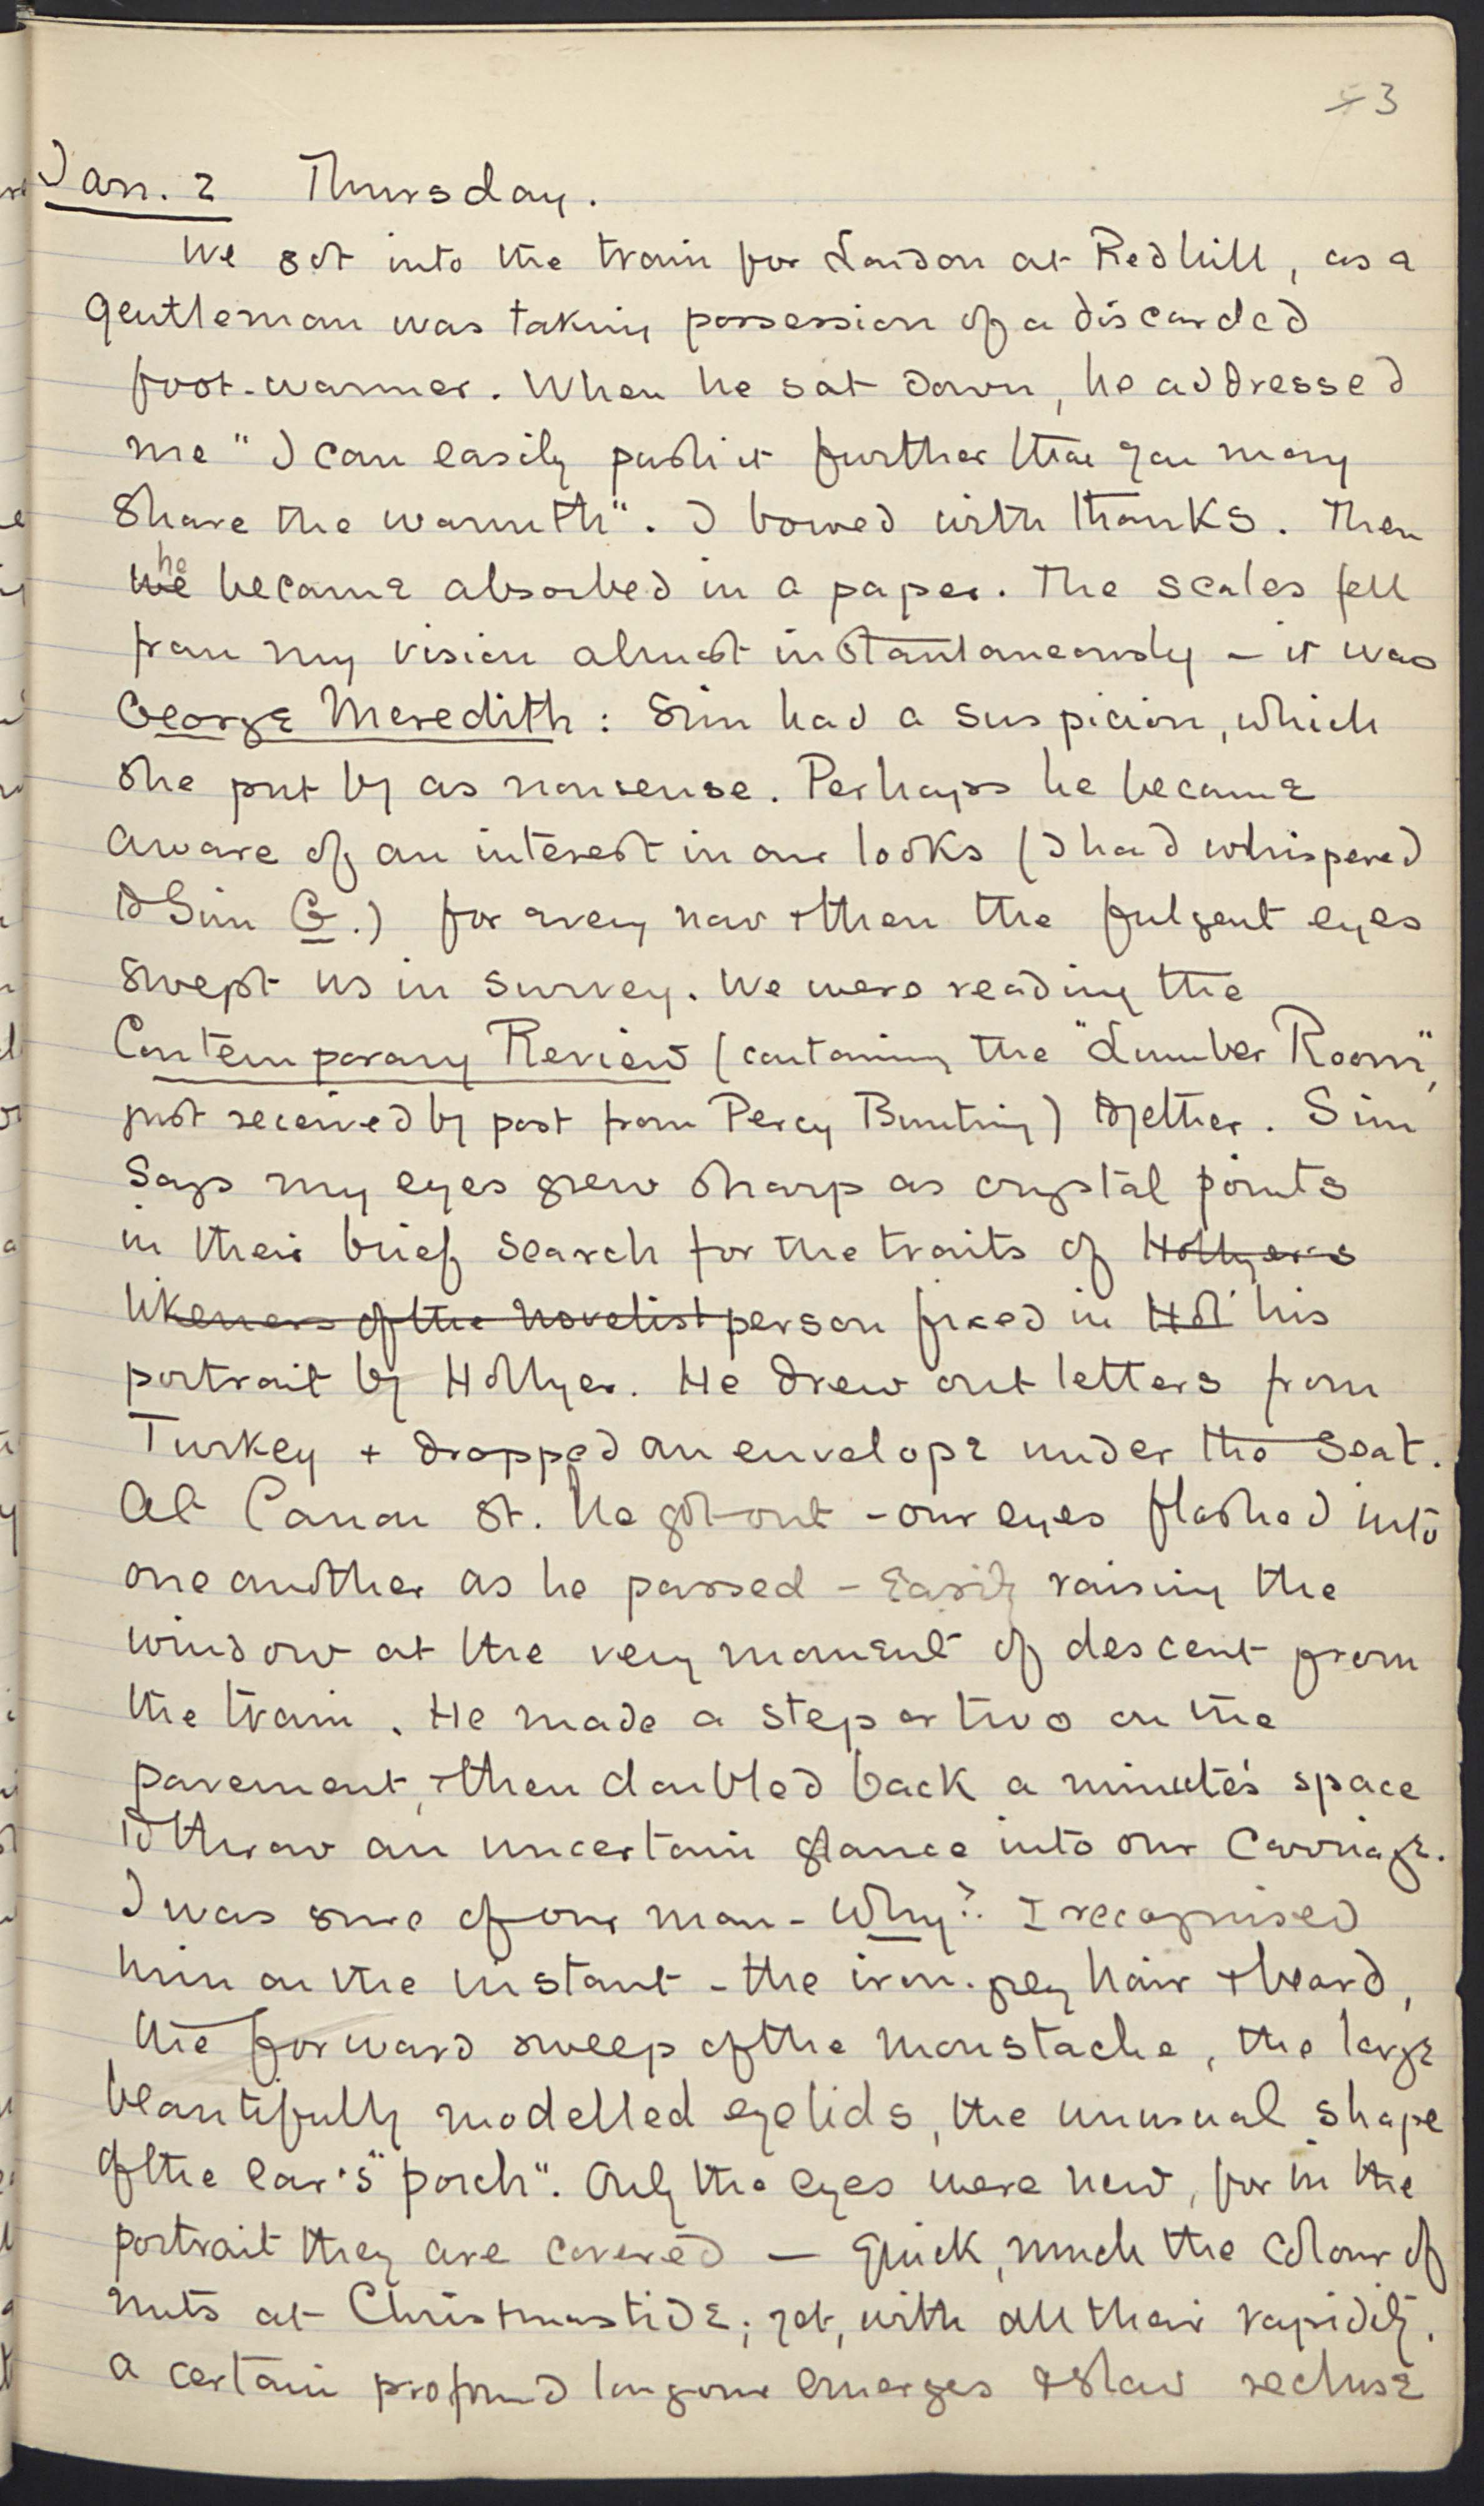 3
Jan. 2 Thursday.
We got into the train for London at Redhill, as a
gentleman was taking possession of a discarded
foot-warmer. When he sat down, he addressed
me "I can easily push it further that you may
share the warmth". I bowed with thanks. Then
we he became absorbed in a paper. The scales fell
from my vision almost instantaneously – it was
George Meredith: Sim had a suspicion, which
she put by as nonsense. Perhaps he became
aware of an interest in our looks (I had whispered
to Sim G.) for every now + then the fulgent eyes
swept us in survey. We were reading the
Contemporary Review (containing the "Lumber Room",
just received by post from Percy Bunting) together. Sim
says my eyes grew sharp as crystal points
in their brief search for the traits of Hollyer's
likeness of the novelist person fixed in Hol his
portrait by Hollyer. He drew out letters from
Turkey + dropped an envelope under the seat.
At Canon St. he got out – our eyes flashed into
one another as he passed – easily raising the
window at the very moment of descent from
the train. He made a step or two on the
pavement, + then doubled back a minute's space
to throw an uncertain glance into our carriage.
I was sure of our man – Why? I recognised
him on the instant – the iron-grey hair + beard,
the forward sweep of the moustache, the large
beautifully modelled eyelids, the unusual shape
of the ear's "porch". Only the eyes were new, for in the
portrait they are covered — quick, much the colour of
nuts at Christmastide; yet, with all their rapidity,
a certain profound langour emerges + slow recluse